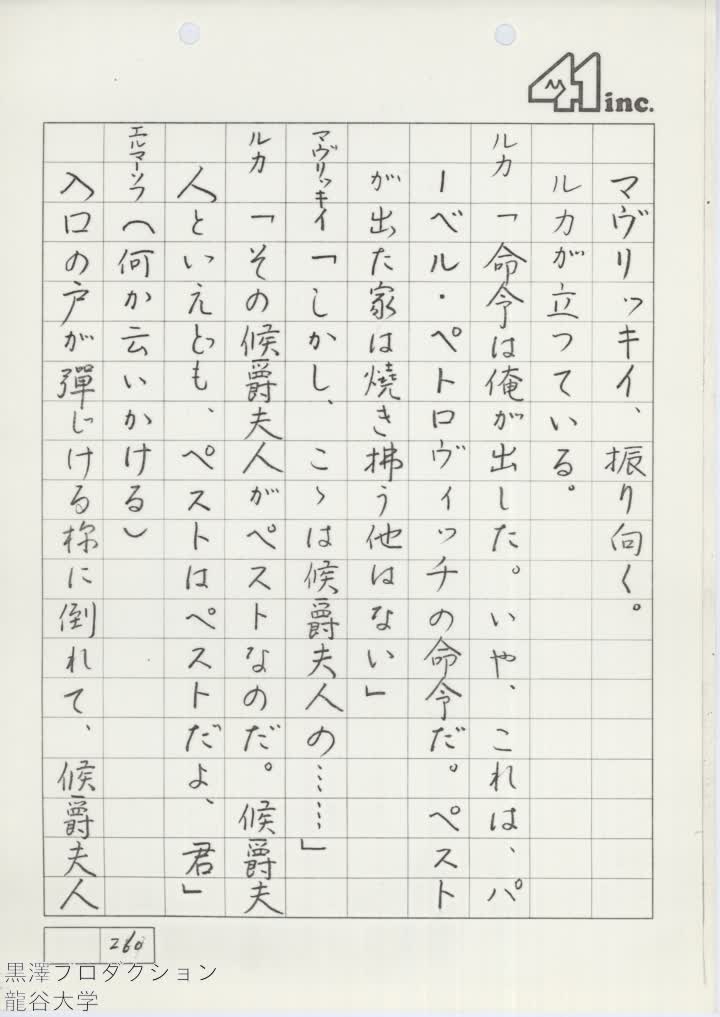 41 inc.
マヴリッキイ、振り向く。
ルカが立つている。
ルカ「命令は俺が出した。いや、これは、パ
ーベル・ペトロヴィッチの命令だ。ペスト
が出た家は燒き拂う他はない」
マヴリッキイ「しかし、こゝは候爵夫人の……」
ルカ「その候爵夫人がペストなのだ。候爵夫
人といえども、ペストはペストだよ、君」
エルマーソフ（何か云いかける）
入口の戸が彈じける様に倒れて、候爵夫人
260
黒澤プロダクション
龍谷大学